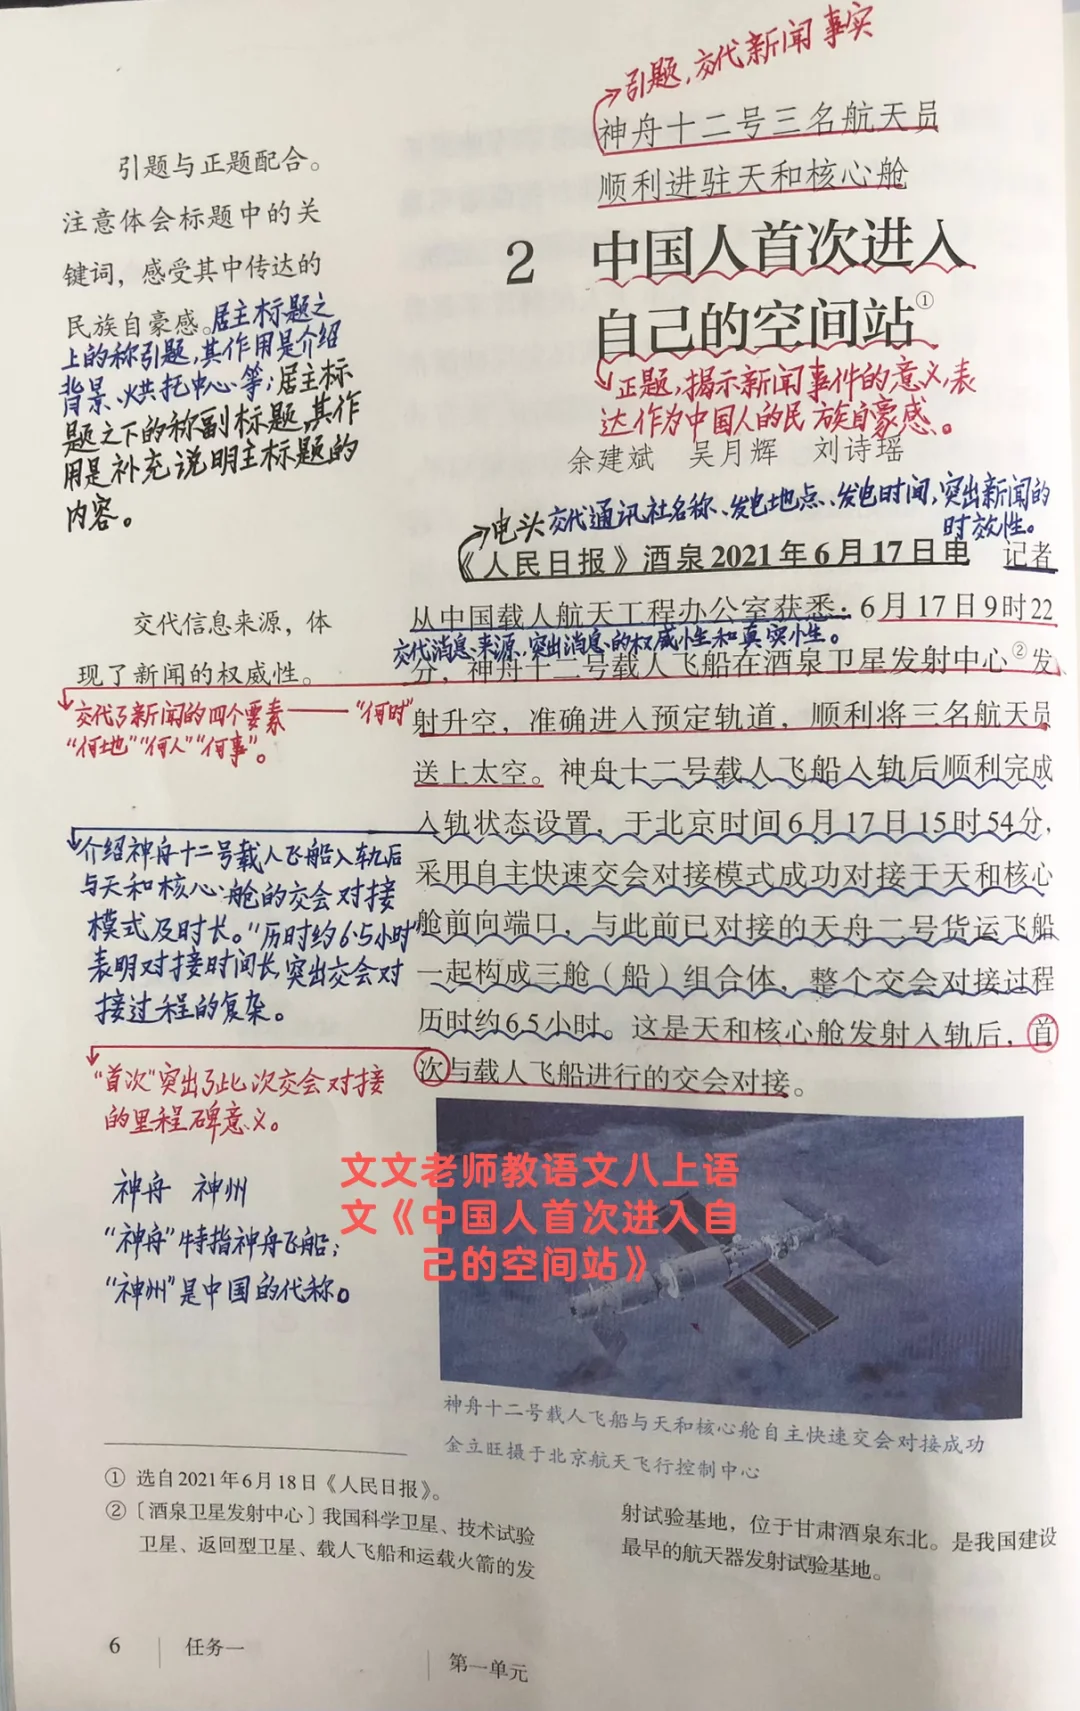 引题,交代新闻事实
神舟十二号三名航天员
顺利进驻天和核心舱
2 中国人首次进入
自己的空间站①
正题,揭示新闻事件的意义,表
达作为中国人的民族自豪感。
余建斌 吴月辉 刘诗瑶
引题与正题配合。
注意体会标题中的关
键词，感受其中传达的
民族自豪感。
居主标题之
上的称引题,其作用是介绍
背景、烘托中心等;居主标
题之下的称副标题,其作
用是补充说明主标题的
内容。
电头 交代通讯社名称、发电地点、发电时间,突出新闻的
时效性。
《人民日报》酒泉2021年6月17日电 记者
从中国载人航天工程办公室获悉：6月17日9时22
交代消息来源,突出消息的权威性和真实性。
分，神舟十二号载人飞船在酒泉卫星发射中心②发
射升空，准确进入预定轨道，顺利将三名航天员
送上太空。神舟十二号载人飞船入轨后顺利完成
入轨状态设置，于北京时间6月17日15时54分，
采用自主快速交会对接模式成功对接于天和核心
舱前向端口，与此前已对接的天舟二号货运飞船
一起构成三舱（船）组合体，整个交会对接过程
历时约6.5小时。这是天和核心舱发射入轨后，首
次与载人飞船进行的交会对接。
交代信息来源，体
现了新闻的权威性。
交代了新闻的四个要素——“何时”
“何地”“何人”“何事”。
介绍神舟十二号载人飞船入轨后
与天和核心舱的交会对接
模式及时长。“历时约6.5小时”
表明对接时间长,突出交会对
接过程的复杂。
“首次”突出了此次交会对接
的里程碑意义。
神舟 神州
“神舟”特指神舟飞船;
“神州”是中国的代称。
文文老师教语文八上语
文《中国人首次进入自
己的空间站》
神舟十二号载人飞船与天和核心舱自主快速交会对接成功
金立旺摄于北京航天飞行控制中心
① 选自2021年6月18日《人民日报》。
②〔酒泉卫星发射中心〕我国科学卫星、技术试验
卫星、返回型卫星、载人飞船和运载火箭的发
射试验基地，位于甘肃酒泉东北。是我国建设
最早的航天器发射试验基地。
6 任务一
第一单元